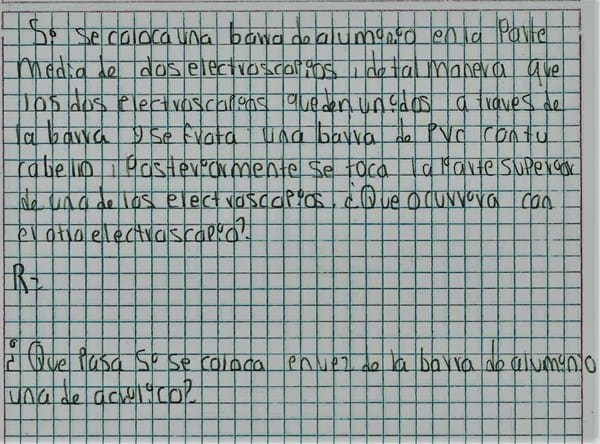 Si se coloca una barra de aluminio en la Parte
media de dos electroscopios, de tal manera que
los dos electroscopios queden unidos a traves de
la barra y se frota una barra de PVC con tu
cabello, Posteriormente se toca la Parte superior
de una de los electroscopios. ¿Que ocurrira con
el otro electroscopio?
R=
¿Que Pasa Si se coloca en vez de la barra de aluminio
una de acrilico?